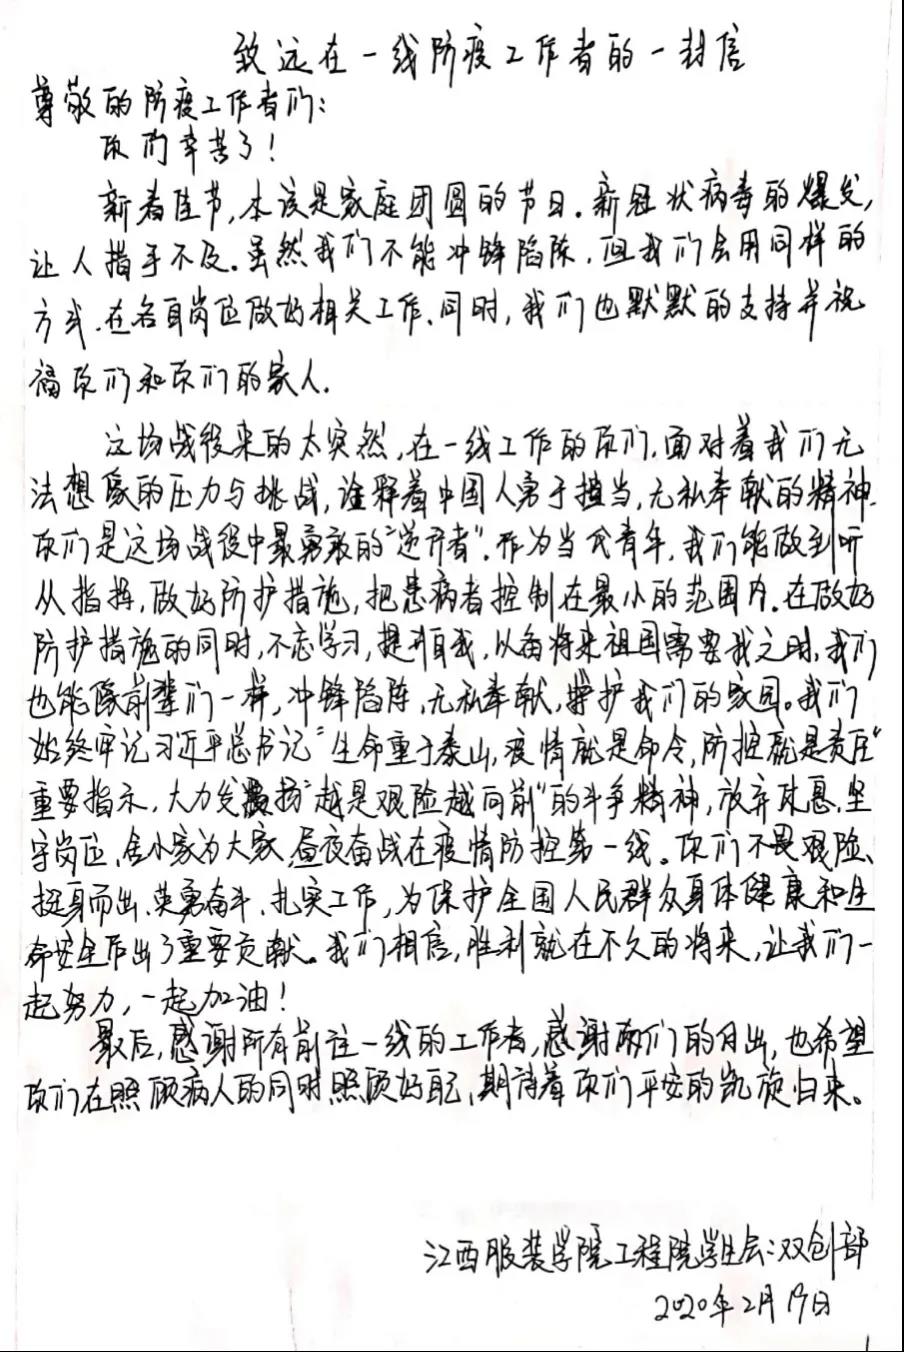 致远在一线防疫工作者的一封信
尊敬的防疫工作者们:
你们辛苦了!
新春佳节,本该是家庭团圆的节日.新冠状病毒的爆发,
让人措手不及.虽然我们不能冲锋陷阵,但我们会用同样的
方式.在各自岗位做好相关工作.同时,我们也默默的支持并祝
福你们和你们的家人.
这场战役来的太突然,在一线工作的你们,面对着我们无
法想象的压力与挑战,诠释着中国人勇于担当,无私奉献的精神.
你们是这场战役中最勇敢的“逆行者”.作为当代青年,我们能做到听
从指挥,做好防护措施,把患病者控制在最小的范围内.在做好
防护措施的同时,不忘学习,提升自我,以备将来祖国需要我之时,我们
也能像前辈们一样,冲锋陷阵,无私奉献,守护我们的家园。我们
始终牢记习近平总书记“生命重于泰山,疫情就是命令,防控就是责任”
重要指示,大力发扬“越是艰险越向前”的斗争精神,放弃休息.坚
守岗位,舍小家为大家,昼夜奋战在疫情防控第一线。你们不畏艰险、
挺身而出.英勇奋斗.扎实工作,为保护全国人民群众身体健康和生
命安全作出了重要贡献。我们相信,胜利就在不久的将来,让我们一
起努力,一起加油!
最后,感谢所有前往一线的工作者,感谢你们的付出,也希望
你们在照顾病人的同时照顾好自己,期待着你们平安的凯旋归来。
江西服装学院工程院学生会:双创部
2020年2月19日